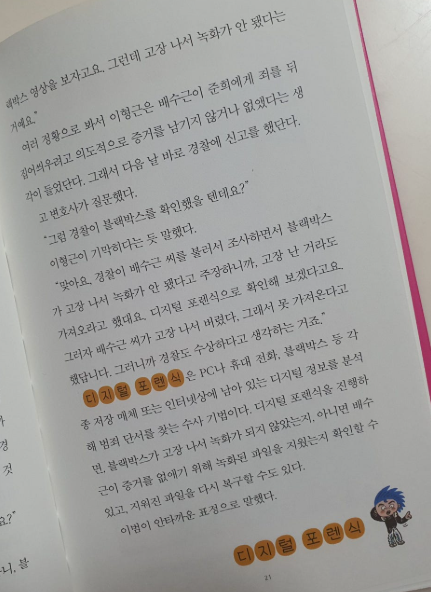 랙박스 영상을 보자고요. 그런데 고장 나서 녹화가 안 됐다는
거예요."
여러 정황으로 봐서 이형근은 배수근이 준희에게 죄를 뒤
집어씌우려고 의도적으로 증거를 남기지 않거나 없앴다는 생
각이 들었단다. 그래서 다음 날 바로 경찰에 신고를 했단다.
고 변호사가 질문했다.
"그럼 경찰이 블랙박스를 확인했을 텐데요?"
이형근이 기막히다는 듯 말했다.
"맞아요. 경찰이 배수근 씨를 불러서 조사하면서 블랙박스
가져오라고 했대요. 디지털 포렌식으로 확인해 보겠다고요.
가 고장 나서 녹화가 안 됐다고 주장하니까, 고장 난 거라도
그러자 배수근 씨가 고장 나서 버렸다, 그래서 못 가져온다고
했답니다. 그러니까 경찰도 수상하다고 생각하는 거죠."
디지털 포렌식은 PC나 휴대 전화, 블랙박스 등 각
종 저장 매체 또는 인터넷상에 남아 있는 디지털 정보를 분석
해 범죄 단서를 찾는 수사 기법이다. 디지털 포렌식을 진행하
면, 블랙박스가 고장 나서 녹화가 되지 않았는지, 아니면 배수
근이 증거를 없애기 위해 녹화된 파일을 지웠는지 확인할 수
있고, 지워진 파일을 다시 복구할 수도 있다.
이범이 안타까운 표정으로 말했다.
디지털 포렌식
21
경
것
요?"
니, 블